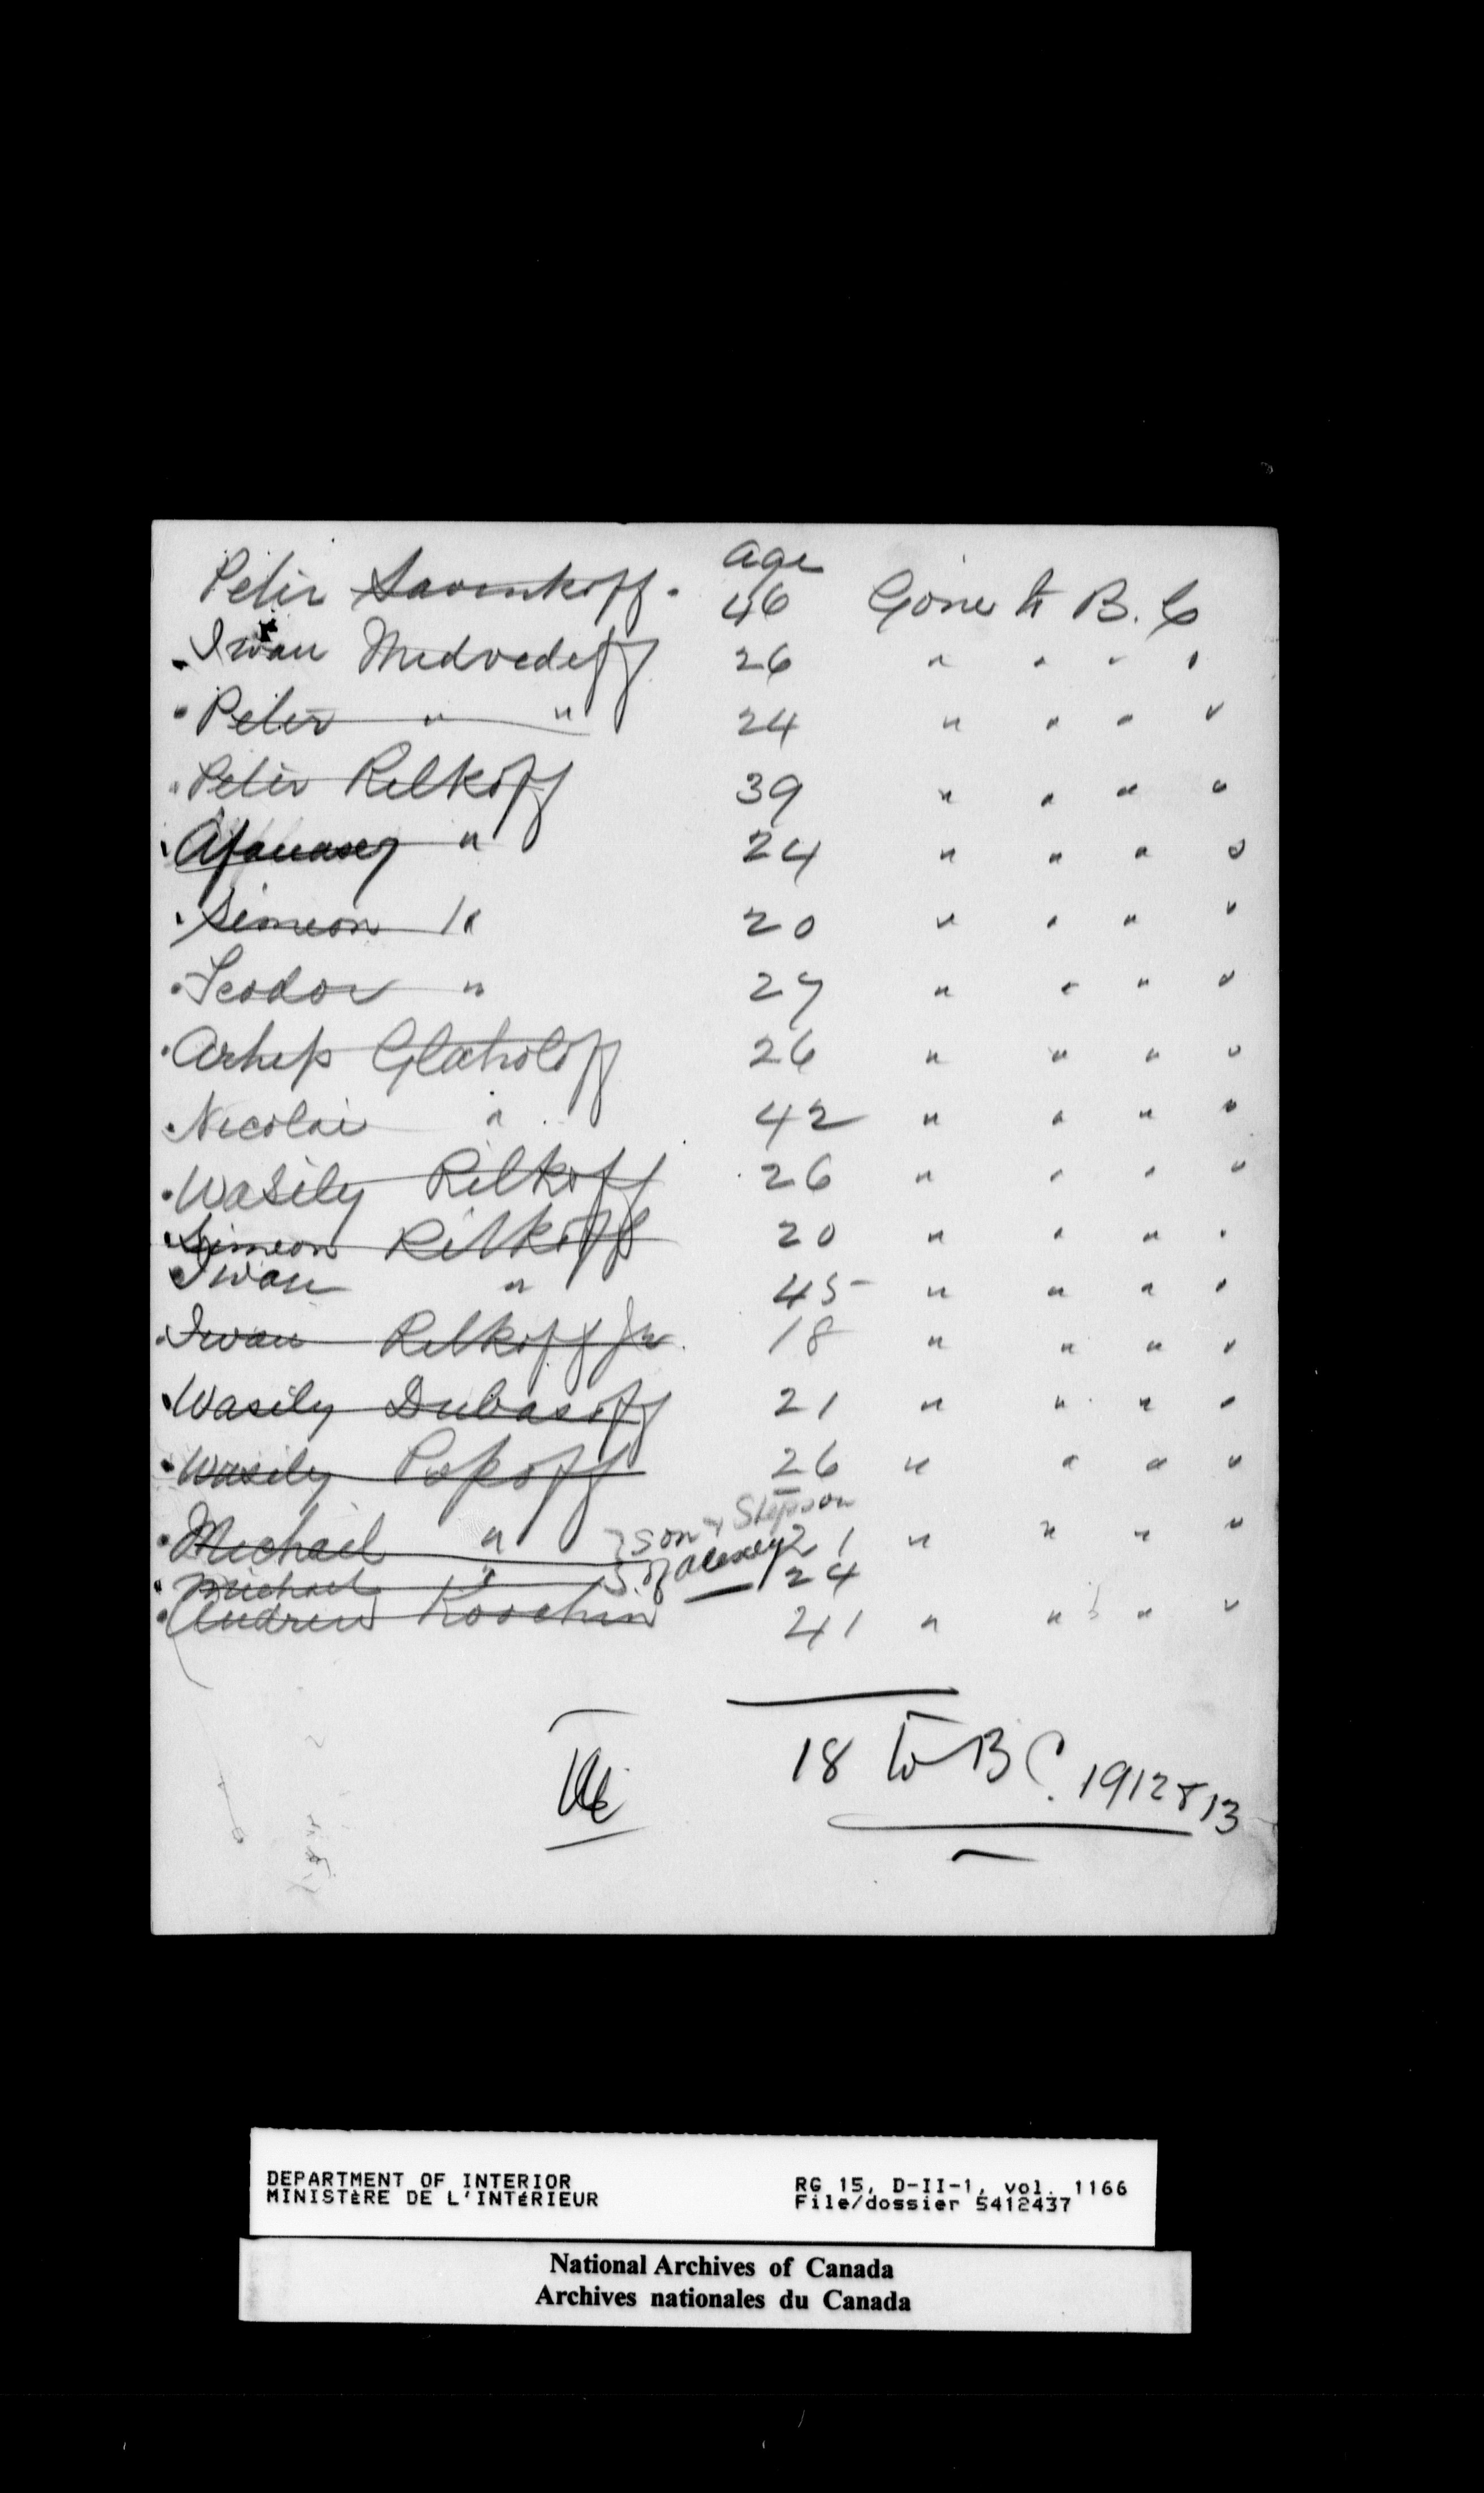 age
Peter Savenkoff. 46 Gone to B. C
Iwan Medvedeff 26 " " " "
Peter " " 24 " " " "
Peter Relkoff 39 " " " "
Afanasey " 24 " " " "
Simeon " 20 " " " "
Feodor " 27 " " " "
Arhip Glaholoff 26 " " " "
Nicolai " 42 " " " "
Wasily Rilkoff 26 " " " "
Simeon Rilkoff 20 " " " "
Iwan " 45 " " " "
Iwan Relkoff Jr. 18 " " " "
Wasily Dubasoff 21 " " " "
Wasily Popoff 26 " " " "
Michael " } son & Stepson 21 " " " "
Michael " } of Alexey 24
Andrew Koochin 41 " " " "
18 to B C. 1912 & 13
DEPARTMENT OF INTERIOR
MINISTÈRE DE L'INTÉRIEUR
RG 15, D-II-1, vol. 1166
File/dossier 5412437
National Archives of Canada
Archives nationales du Canada